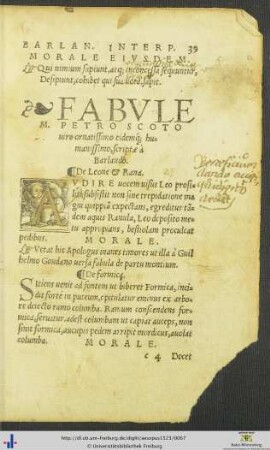 BARLAN. INTERP. 39
MORALE EIVSDEM.
Qui nimium sapiunt, atq; inconcessa sequuntur,
Desipiunt, cohibet qui sua vota, sapit.
FABVLE
M. PETRO SCOTO
viro ornatissimo eidemq; hu
manissimo, scriptæ à
Barlando.
De Leone & Rana.
AVDIRE vocem visus Leo prosi
lit, subsistit non sine trepidatione ma
gni quippiã expectans, egreditur tã
dem aquis Ranula, Leo deposito me
tu appropians, bestiolam proculcat
pedibus. MORALE.
Vetat hic Apologus inanes timores ut illa à Guil
helmo Goudano versa fabula de partu montium.
De Formica.
Sitiens uenit ad fontem ut biberet Formica, inci
dit forte in puteum, opitulatur ementi ex arbo
re deiecto ramo columba. Ramum conscendens for
mica, seruatur. adest columbam ut capiat auceps, non
sinit formica, aucupis pedem arripit mordicus, auolat
columba. MORALE.
c 4 Docet
http://dl.ub.uni-freiburg.de/diglit/aesopus1523/0087
© Universitätsbibliothek Freiburg